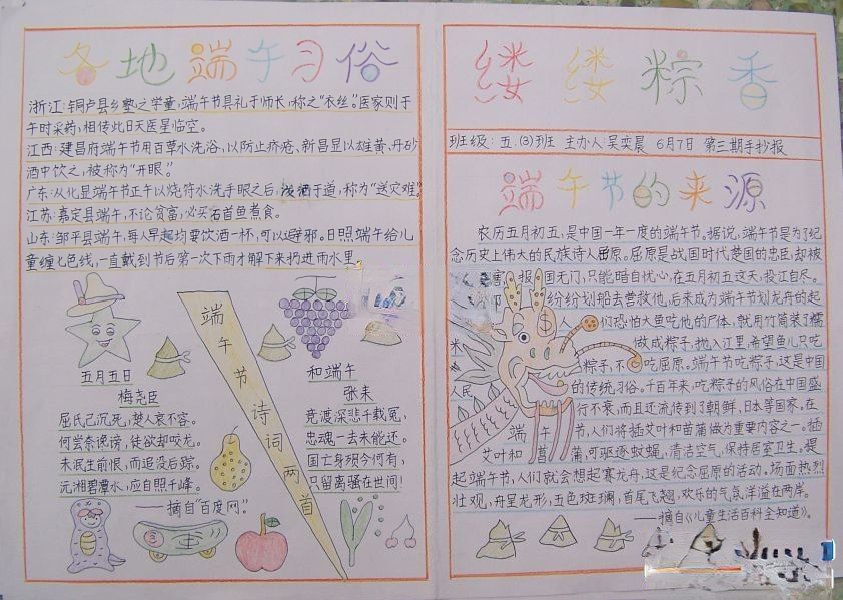 各地端午习俗
浙江:铜卢县乡塾之学童,端午节具礼于师长,称之"衣丝。"医家则于
午时采药,相传此日天医星临空。
江西:建昌府端午节用百草水洗浴,以防止疥疮、新昌显以雄黄、丹砂
酒中饮之,被称为"开眼。"
广东:从化显端午节正午以烧符水洗手眼之后,泼洒于道,称为"送灾难"。
江苏:嘉定县端午,不论贫富,必买石首鱼煮食。
山东:邹平县端午,每人早起均要饮酒一杯,可以避邪。日照端午给儿
童缠七色线,一直戴到节后第一次下雨才解下来扔进雨水里。
端午节诗词两首
五月五日
梅尧臣
屈氏已沉死,楚人哀不容。
何尝奈谗谤,徒欲却咬龙。
未泯生前恨,而追没后踪。
沅湘碧潭水,应自照千峰。
——摘自"百度网"。
和端午
张耒
竞渡深悲千载冤,
忠魂一去未能还。
国亡身殒今何有,
只留离骚在世间!
缕缕粽香
班级:五.(3)班 主办人:吴奕晨 6月7日 第三期手抄报
端午节的来源
农历五月初五,是中国一年一度的端午节。据说,端午节是为了纪
念历史上伟大的民族诗人屈原。屈原是战国时代楚国的忠臣,却被
报国无门,只能暗自忧心,在五月初五这天,投江自尽。
纷纷划船去营救他,后来成为端午节划龙舟的起
人们恐怕大鱼吃他的尸体,就用竹筒装了糯
米做成粽子,抛入江里,希望鱼儿只吃
粽子,不吃屈原。端午节吃粽子,这是中国
人民的传统习俗。千百年来,吃粽子的风俗在中国盛
行不衰,而且还流传到了朝鲜,日本等国家,在
端午节,人们将插艾叶和菖蒲做为重要内容之一。插
艾叶和菖蒲,可驱逐蚊蝇,清洁空气,保持居室卫生。提
起端午节,人们就会想起赛龙舟,这是纪念屈原的活动。场面热烈
壮观,舟呈龙形,五色斑斓,首尾飞翘,欢乐的气氛洋溢在两岸。
——摘自《儿童生活百科全知道》。